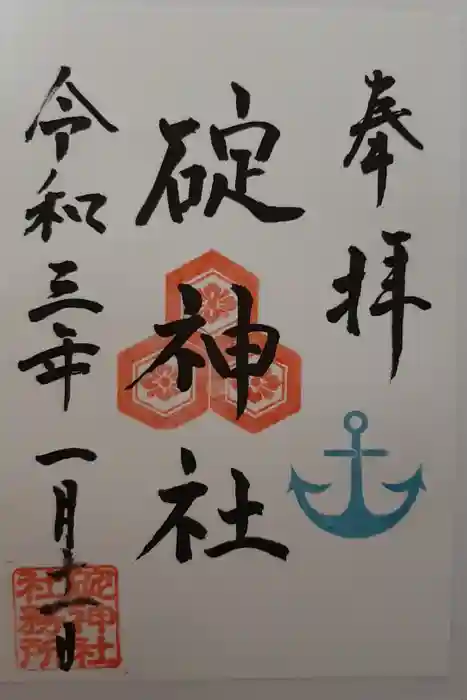 奉拝
碇神社
令和三年一月十一日
碇神社
社務所